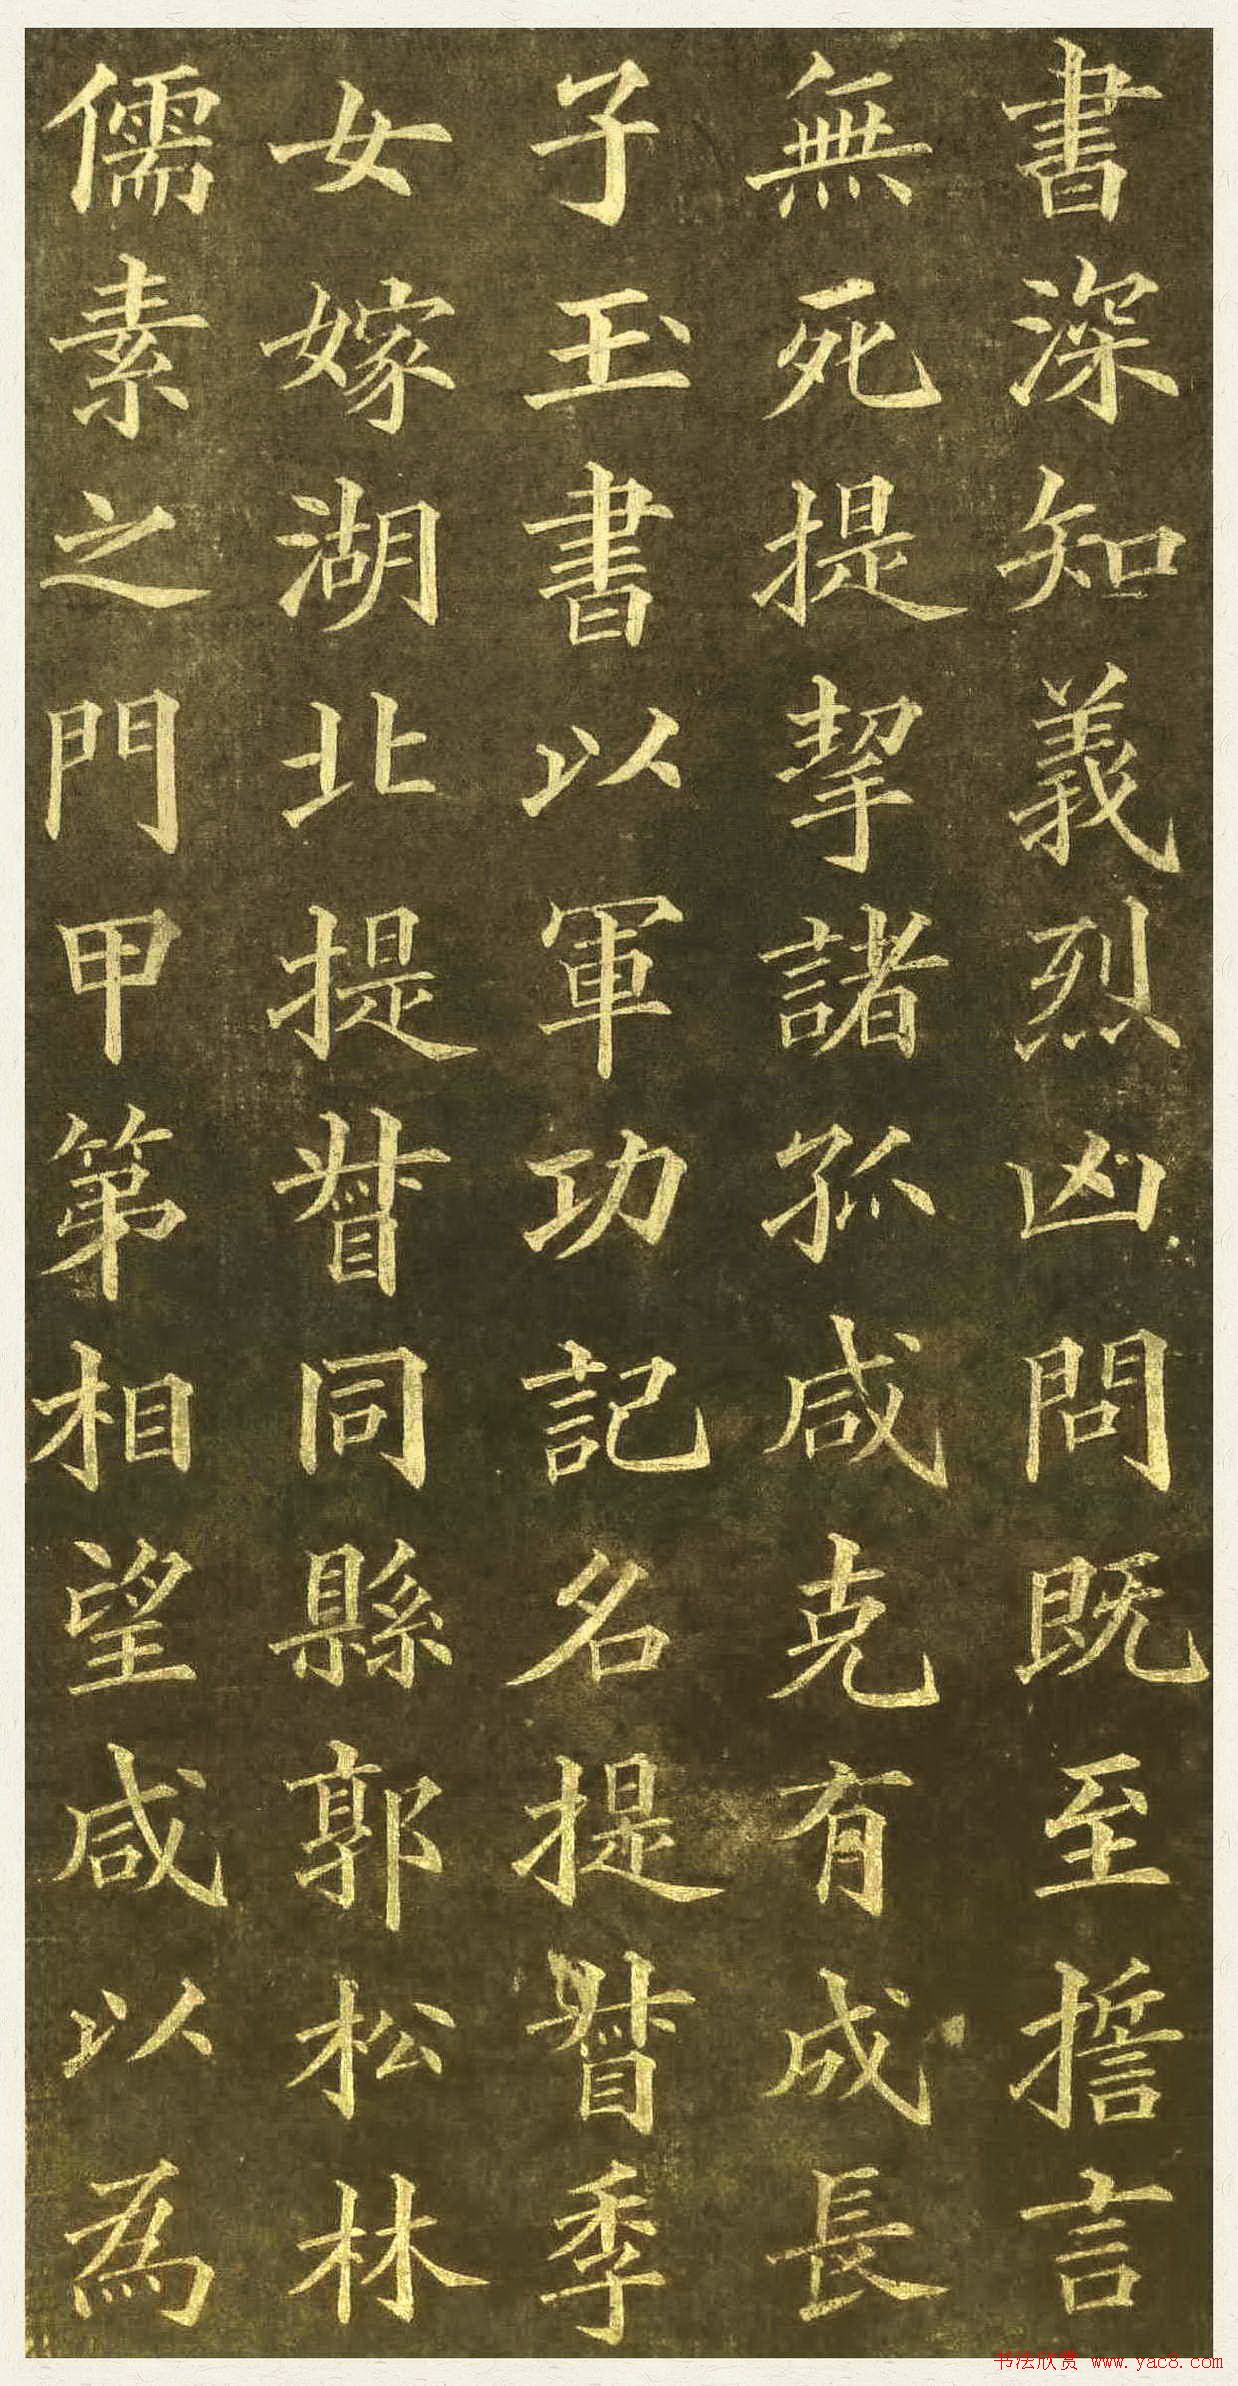 書深知義烈凶問既至捂言
無死提挈諸孤咸克有成長
子玉書以軍功記名提督季
女嫁湖北提督同縣郭松林
儒素之門甲第相望咸以為
书法欣赏 www.yac8.com